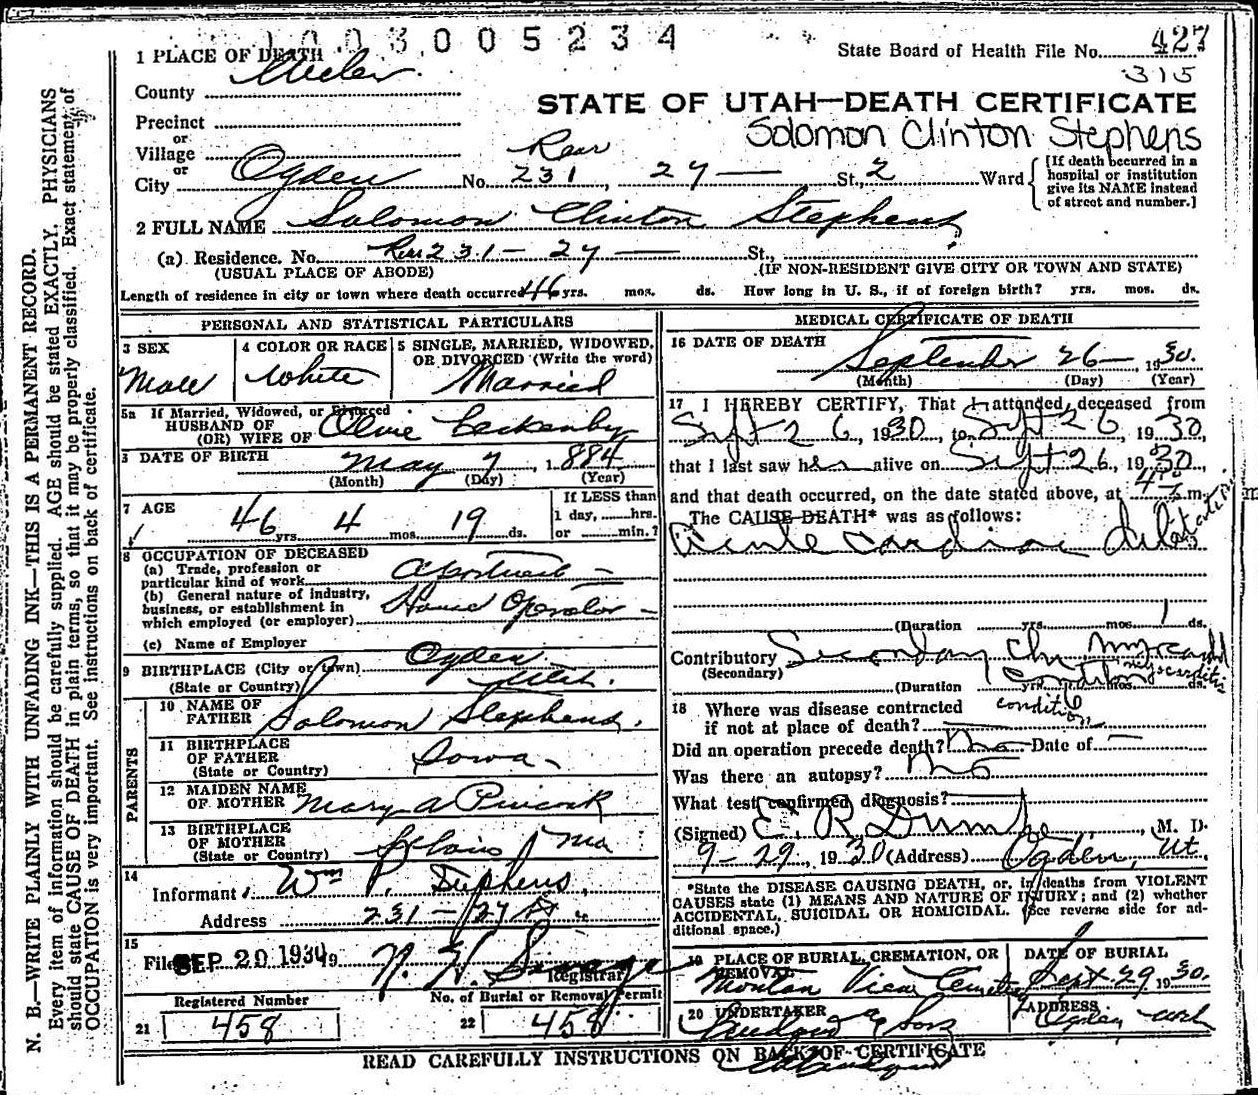 1003005234
State Board of Health File No. 427
315
1 PLACE OF DEATH
County Weber
STATE OF UTAH—DEATH CERTIFICATE
Precinct
or
Village
Solomon Clinton Stephens
or
City Ogden No. Rear 231, 27 — St., 2 Ward
[If death occurred in a hospital or institution give its NAME instead of street and number.]
2 FULL NAME Solomon Clinton Stephens
(a) Residence. No. Rear 231 – 27 — St.,
(USUAL PLACE OF ABODE) (IF NON-RESIDENT GIVE CITY OR TOWN AND STATE)
Length of residence in city or town where death occurred 46 yrs. mos. ds. How long in U. S., if of foreign birth? yrs. mos. ds.
PERSONAL AND STATISTICAL PARTICULARS
3 SEX
Male
4 COLOR OR RACE
White
5 SINGLE, MARRIED, WIDOWED, OR DIVORCED (Write the word)
Married
5a If Married, Widowed, or Divorced
HUSBAND OF
(OR) WIFE OF Olvie
DATE OF BIRTH May 7, 1884
(Month) (Day) (Year)
7 AGE
46 yrs. 4 mos. 19 ds.
If LESS than
1 day, hrs.
or min.?
8 OCCUPATION OF DECEASED
(a) Trade, profession or
particular kind of work Apartment –
(b) General nature of industry,
business, or establishment in
which employed (or employer) House Operator –
(c) Name of Employer
9 BIRTHPLACE (City or town) Ogden
(State or Country) Utah.
PARENTS
10 NAME OF
FATHER Solomon Stephens.
11 BIRTHPLACE
OF FATHER
(State or Country) Iowa –
12 MAIDEN NAME
OF MOTHER Mary A Pincock
13 BIRTHPLACE
OF MOTHER
(State or Country) St Louis, Mo
14
Informant Wm P. Stephens,
Address 231 – 27 St
15
Filed SEP 20 1930
Registrar
Registered Number
21 458
No. of Burial or Removal Permit
22 458
MEDICAL CERTIFICATE OF DEATH
16 DATE OF DEATH
September 26 – 1930.
(Month) (Day) (Year)
17 I HEREBY CERTIFY, That I attended deceased from
Sept 26, 1930, to Sept 26, 1930,
that I last saw h alive on Sept 26, 1930,
and that death occurred, on the date stated above, at 4 m.
The CAUSE DEATH* was as follows:
Acute Cardiac dilatation
(Duration yrs. mos. 1 ds.
Contributory Secondary Chr Myocard
(Secondary) condition myocarditis
(Duration yrs. mos. ds.
18 Where was disease contracted condition
if not at place of death?
Did an operation precede death? No Date of —
Was there an autopsy? no
What test confirmed diagnosis?
(Signed) E R Dumke, M. D.
9 – 29, 1930 (Address) Ogden, Ut.
*State the DISEASE CAUSING DEATH, or, in deaths from VIOLENT
CAUSES state (1) MEANS AND NATURE OF INJURY; and (2) whether
ACCIDENTAL, SUICIDAL OR HOMICIDAL. (See reverse side for ad-
ditional space.)
19 PLACE OF BURIAL, CREMATION, OR REMOVAL
Mountan View Cemetery
DATE OF BURIAL
Sept 29 1930.
20 UNDERTAKER
& Sons
ADDRESS
Ogden Utah
READ CAREFULLY INSTRUCTIONS ON BACK OF CERTIFICATE
N. B.—WRITE PLAINLY WITH UNFADING INK—THIS IS A PERMANENT RECORD.
Every item of information should be carefully supplied. AGE should be stated EXACTLY. PHYSICIANS
should state CAUSE OF DEATH in plain terms, so that it may be properly classified. Exact statement of
OCCUPATION is very important. See instructions on back of certificate.